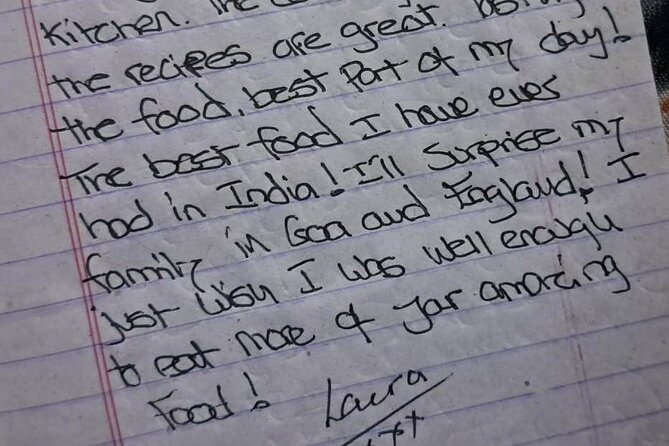 Kitchen. The
the recipes are great.
the food. best Part of my day!
The best food I have ever
had in India! I'll Surprise my
family in Goa and England! I
just wish I was well enough
to eat more of your amazing
Food!
Laura
xx